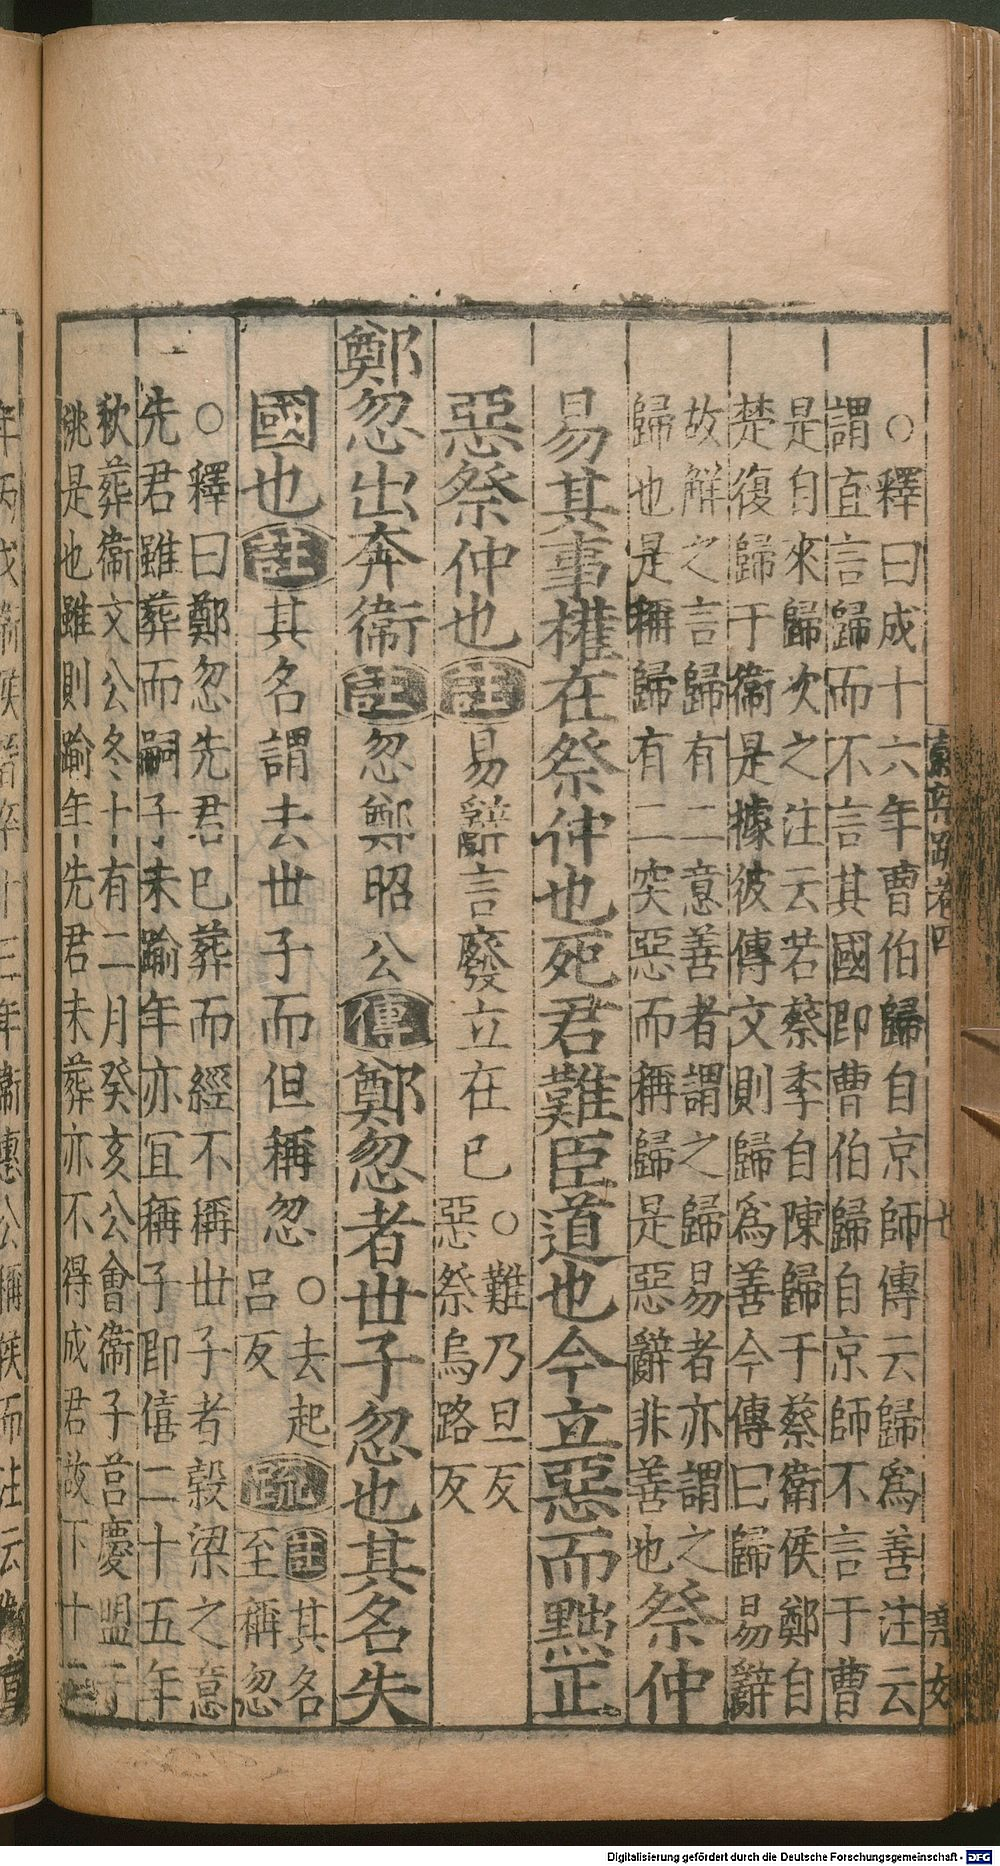 ○釋曰成十六年曹伯歸自京師傳云歸爲善注云
謂直言歸而不言其國即曹伯歸自京師不言于曹
是自來歸次之注云若蔡季自陳歸于蔡衛侯鄭自
楚復歸于衛是據彼傳文則歸爲善今傳曰歸易辭
故解之言歸有二意善者謂之歸易者亦謂之
歸也是稱歸有二突惡而稱歸是惡辭非善也
祭仲
易其事權在祭仲也死君難臣道也今立惡而黜正
惡祭仲也註易辭言廢立在已
○難乃旦反
惡祭烏路反
鄭忽出奔衞註忽鄭昭公傳鄭忽者世子忽也其名失
國也註其名謂去世子而但稱忽
○去起
呂反
疏
註其名
至稱忽
○釋曰鄭忽先君已葬而經不稱世子者穀梁之意
先君雖葬而嗣子未踰年亦宜稱子即僖二十五年
秋葬衞文公冬十有二月癸亥公會衞子莒慶盟于
洮是也雖則踰年先君未葬亦不得成君故下十三
Digitalisierung gefördert durch die Deutsche Forschungsgemeinschaft - DFG